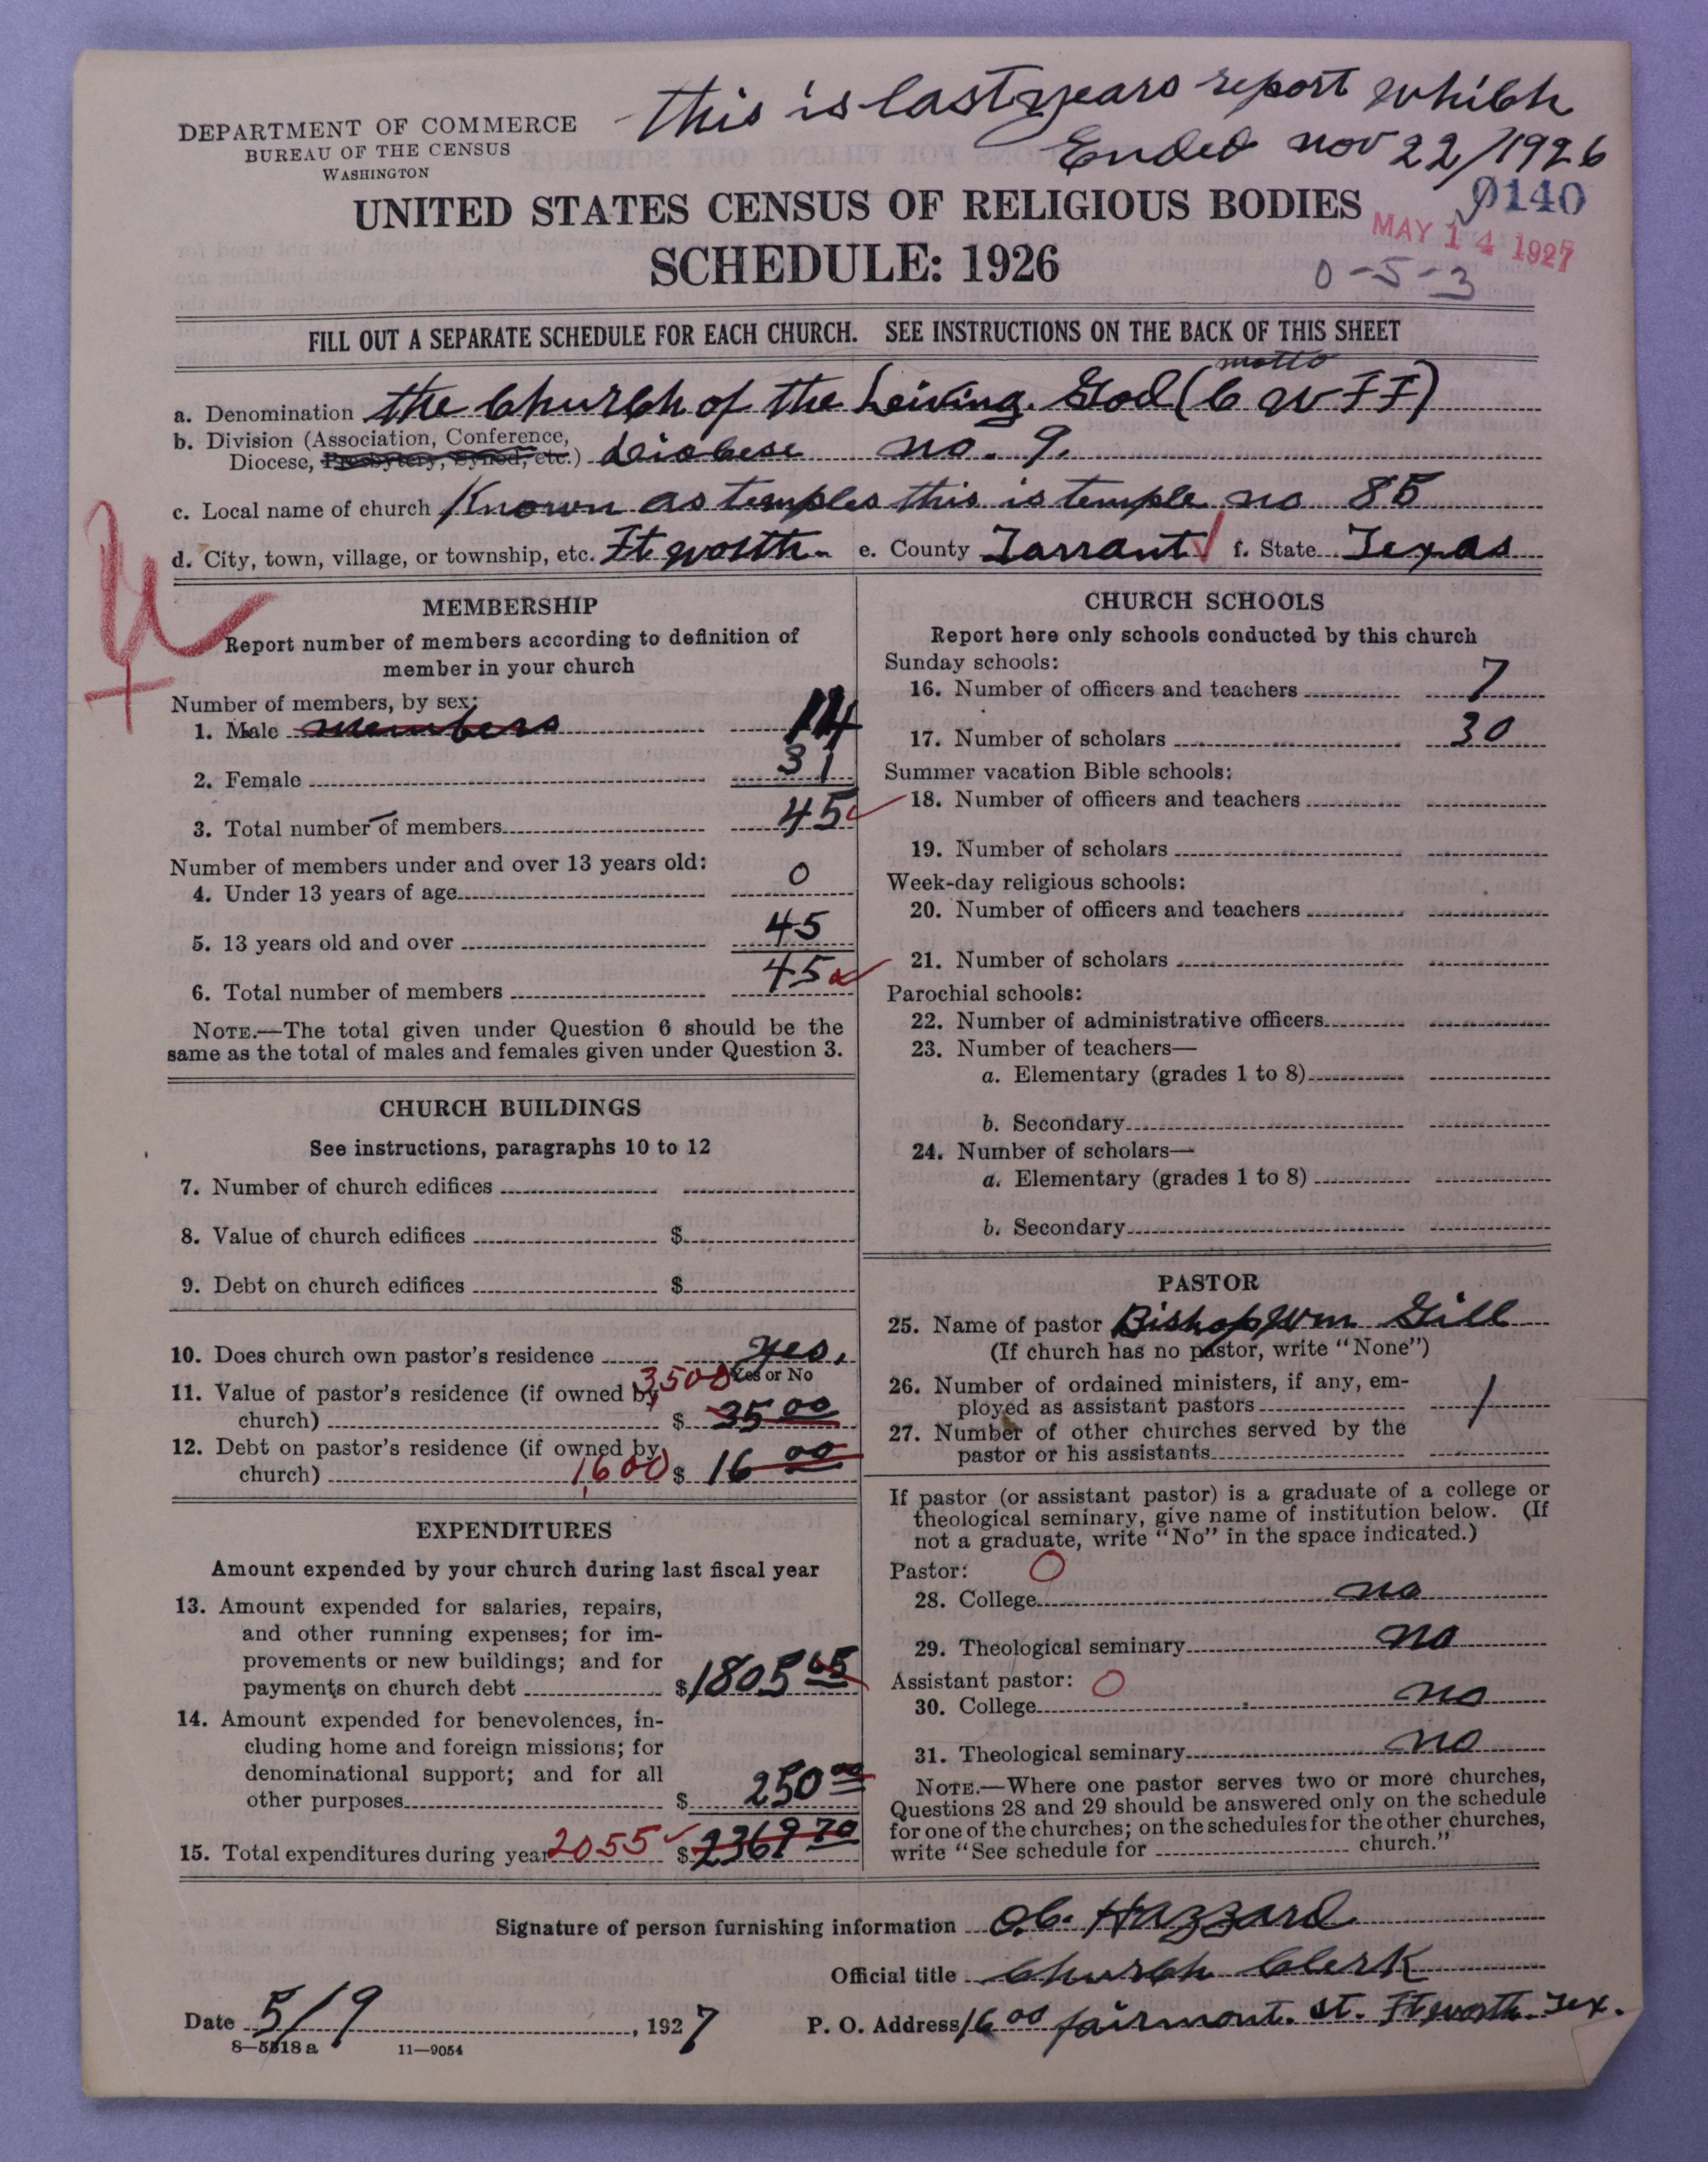 This is last years report which
Ended nov 22/1926
DEPARTMENT OF COMMERCE
BUREAU OF THE CENSUS
WASHINGTON
UNITED STATES CENSUS OF RELIGIOUS BODIES
SCHEDULE: 1926
0140
MAY 14 1927
0-5-3
FILL OUT A SEPARATE SCHEDULE FOR EACH CHURCH. SEE INSTRUCTIONS ON THE BACK OF THIS SHEET
motto
a. Denomination the Church of the Leiving God (C W F F)
b. Division (Association, Conference,
Diocese, Presbytery, Synod, etc.) Diocese no. 9.
c. Local name of church Known as temples this is temple no 85
d. City, town, village, or township, etc. Ft worth. e. County Tarrant f. State Texas
MEMBERSHIP
Report number of members according to definition of
member in your church
Number of members, by sex:
1. Male members 14
2. Female 31
3. Total number of members 45
Number of members under and over 13 years old:
4. Under 13 years of age 0
5. 13 years old and over 45
6. Total number of members 45
NOTE.—The total given under Question 6 should be the
same as the total of males and females given under Question 3.
CHURCH BUILDINGS
See instructions, paragraphs 10 to 12
7. Number of church edifices
8. Value of church edifices $
9. Debt on church edifices $
10. Does church own pastor's residence yes.
Yes or No
11. Value of pastor's residence (if owned by 3500
church) $ 35 00
12. Debt on pastor's residence (if owned by
church) 1600 $ 16 00
EXPENDITURES
Amount expended by your church during last fiscal year
13. Amount expended for salaries, repairs,
and other running expenses; for im-
provements or new buildings; and for
payments on church debt $1805 65
14. Amount expended for benevolences, in-
cluding home and foreign missions; for
denominational support; and for all
other purposes $ 250 00
15. Total expenditures during year 2055 $ 2369 70
CHURCH SCHOOLS
Report here only schools conducted by this church
Sunday schools:
16. Number of officers and teachers 7
17. Number of scholars 30
Summer vacation Bible schools:
18. Number of officers and teachers
19. Number of scholars
Week-day religious schools:
20. Number of officers and teachers
21. Number of scholars
Parochial schools:
22. Number of administrative officers
23. Number of teachers—
a. Elementary (grades 1 to 8)
b. Secondary
24. Number of scholars—
a. Elementary (grades 1 to 8)
b. Secondary
PASTOR
25. Name of pastor Bishop Wm Gill
(If church has no pastor, write "None")
26. Number of ordained ministers, if any, em-
ployed as assistant pastors 1
27. Number of other churches served by the
pastor or his assistants
If pastor (or assistant pastor) is a graduate of a college or
theological seminary, give name of institution below. (If
not a graduate, write "No" in the space indicated.)
Pastor: O
28. College no
29. Theological seminary no
Assistant pastor: O
30. College no
31. Theological seminary no
NOTE.—Where one pastor serves two or more churches,
Questions 28 and 29 should be answered only on the schedule
for one of the churches; on the schedules for the other churches,
write "See schedule for church."
Signature of person furnishing information O.C. Hazzard
Official title Church Clerk
Date 5/9, 1927 P. O. Address 1600 fairmont. st. Ft worth. Tex.
8—5518 a 11—9054